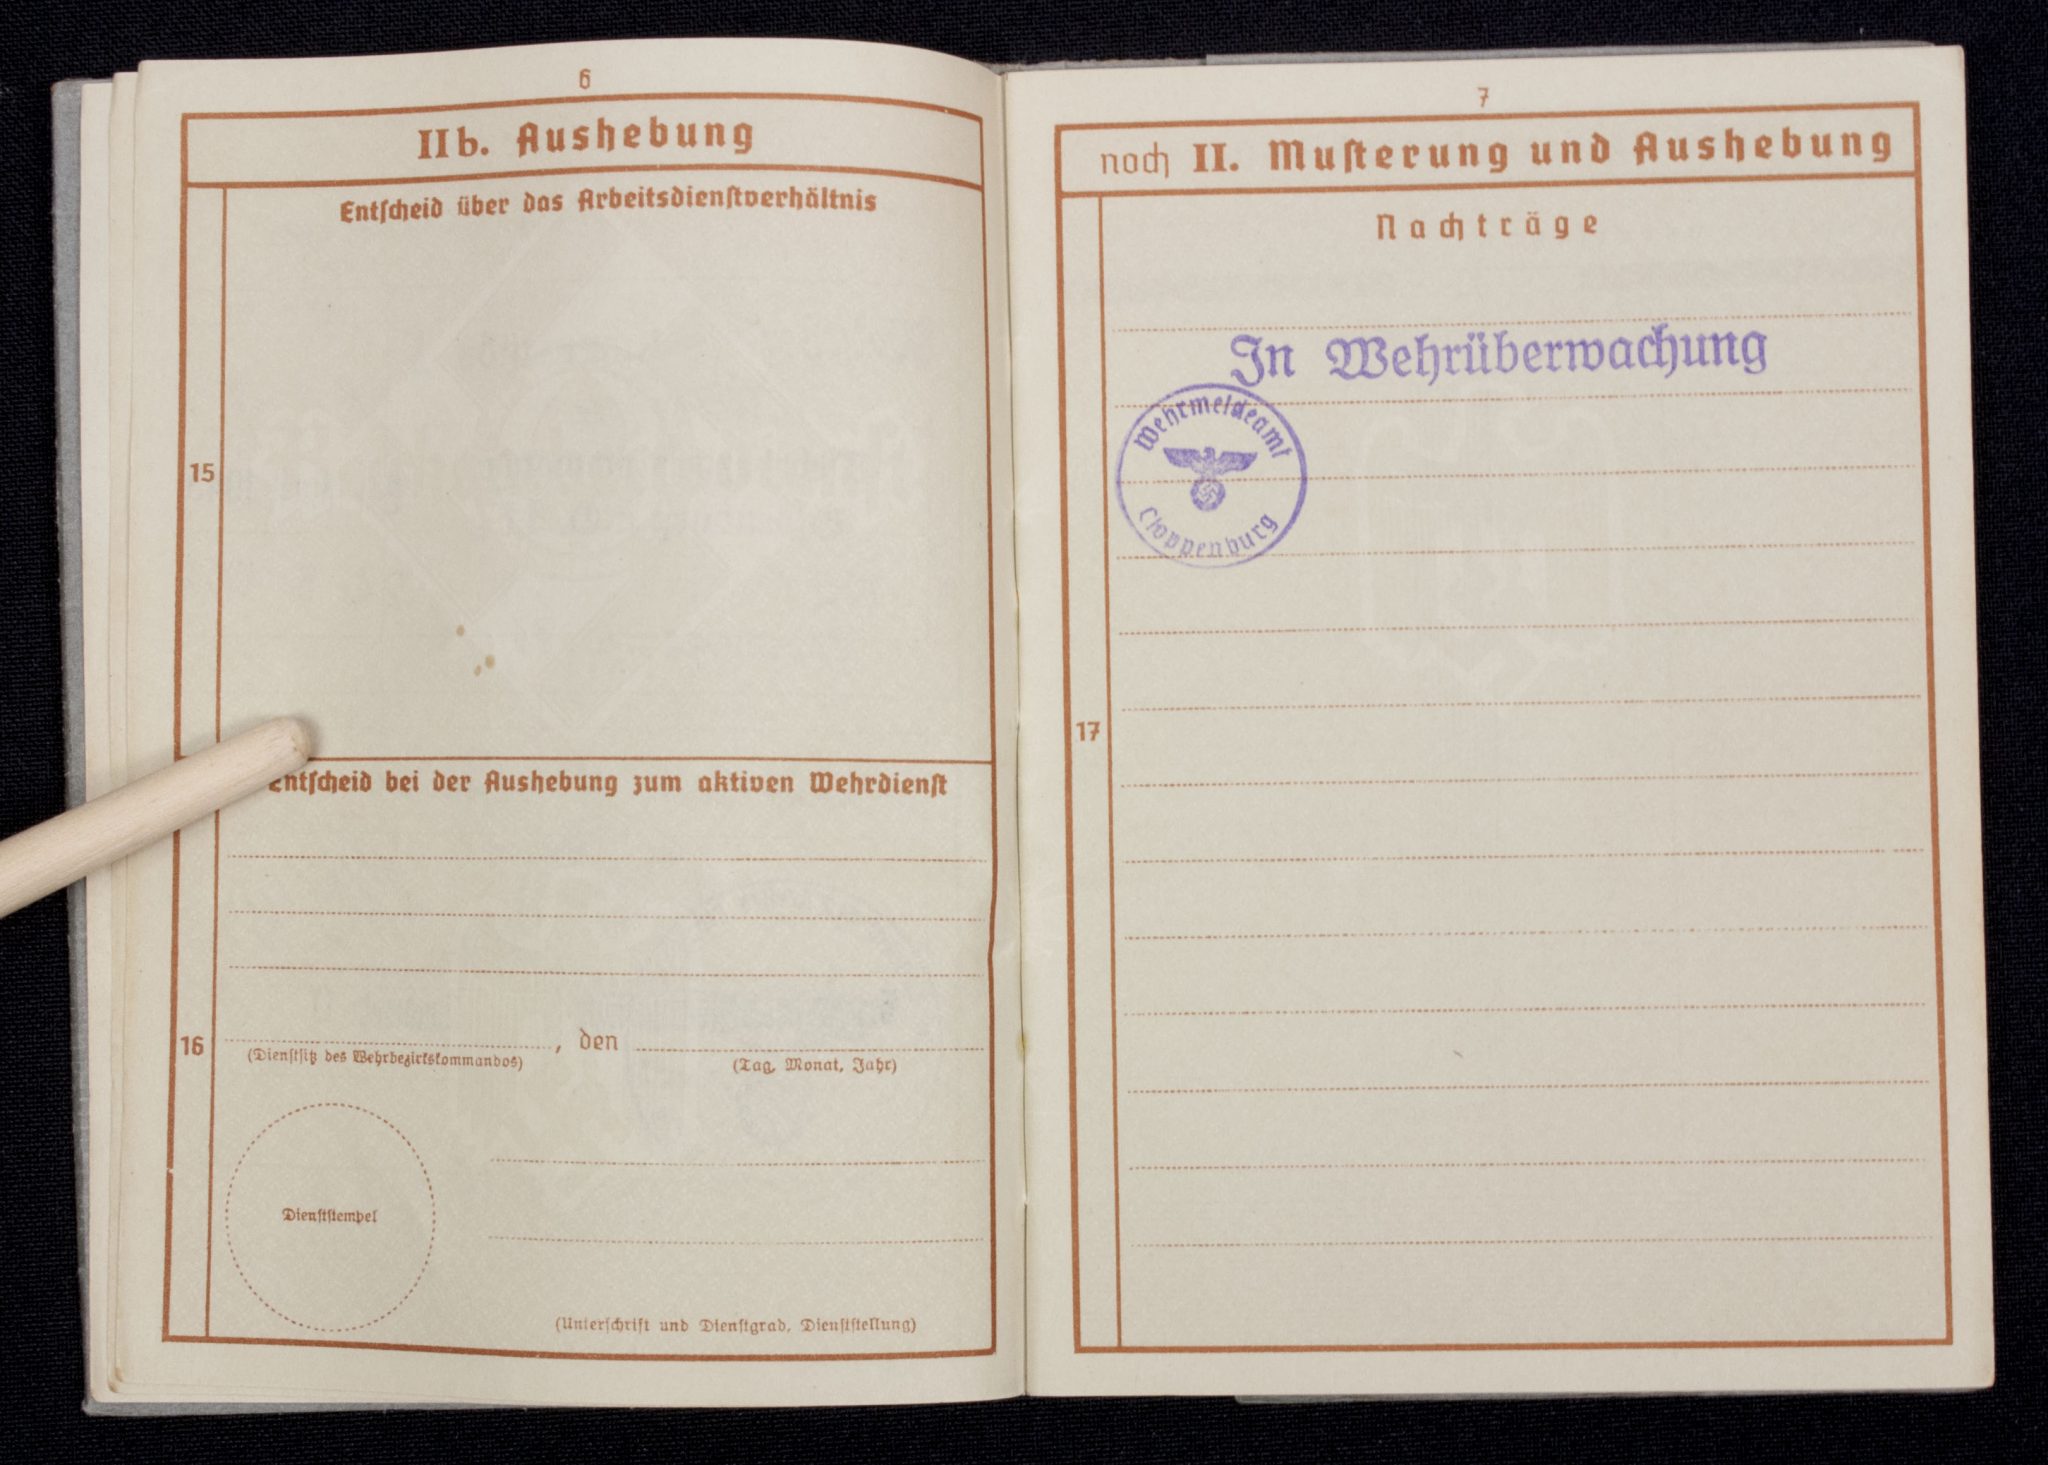 6
IIb. Aushebung
Entſcheid über das Arbeitsdienſtverhältnis
15
Entſcheid bei der Aushebung zum aktiven Wehrdienſt
16
, den
(Dienſtſitz des Wehrbezirkskommandos)
(Tag, Monat, Jahr)
Dienſtſtempel
(Unterſchrift und Dienſtgrad, Dienſtſtellung)
7
noch II. Muſterung und Aushebung
Nachträge
In Wehrüberwachung
Wehrmeldeamt
Cloppenburg
17